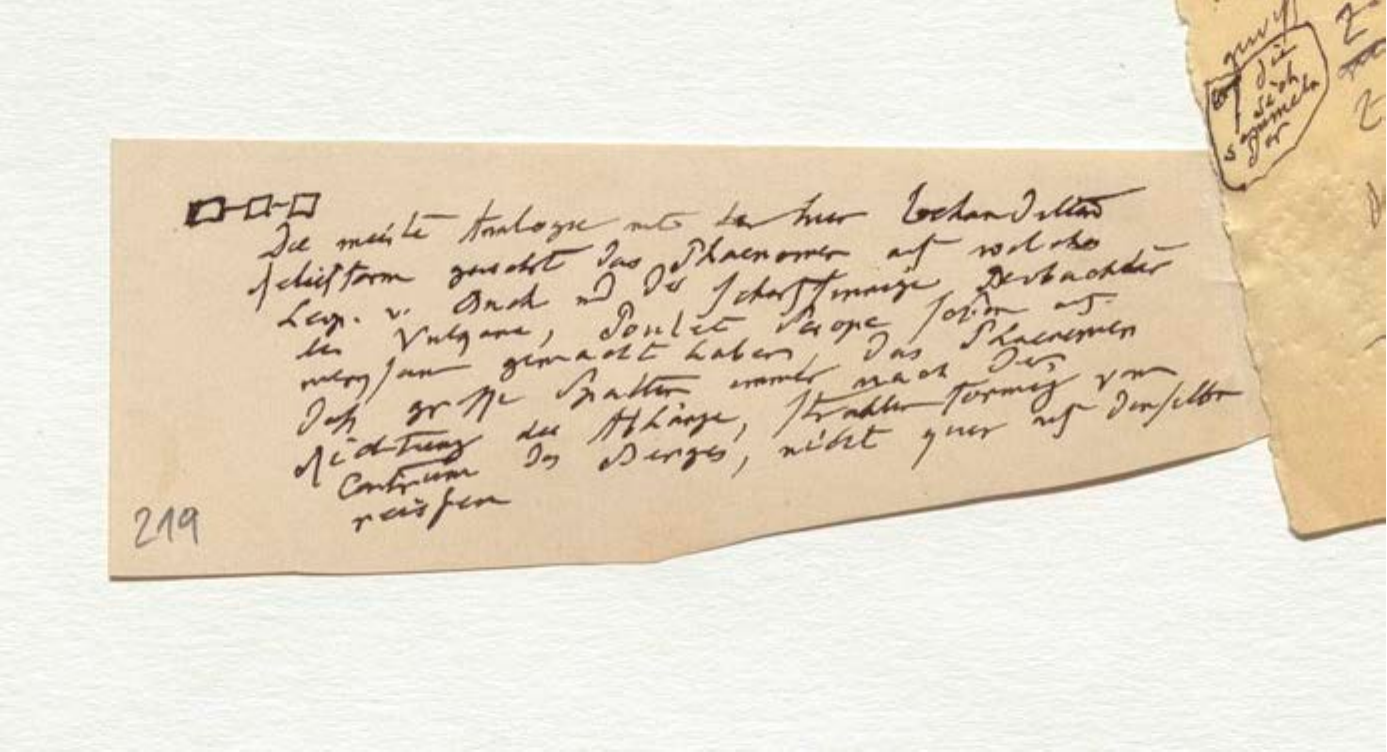 Die meiste Analogie mit der hier behandelten
gewährt das Phaenomen auf welches
Leop. v. Buch und der scharfsinnige Beobachter
der Vulgane, Poulet Scrope schon auf
merksam gemacht haben, das Phaenomen
daß große Spalten immer nach der
Richtung der Abhänge, strahlenförmig vom
Centrum des Berges, nicht quer auf denselben
reißen
219
die
sich
sammeln
der